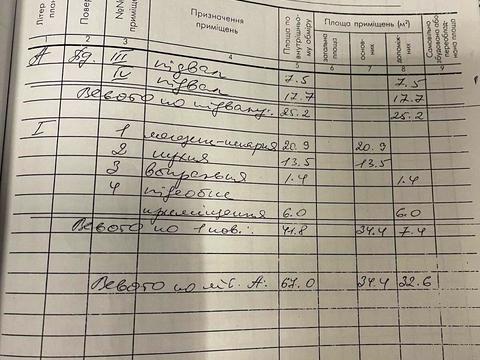 Літер. план
Повер
№№ приміщ
Призначення приміщень
Площа по внутрішньому обміру
Площа приміщень (м²)
загальна площа
основних
допоміжних
Самовільно збудована або переобладнана площа
1 2 3 4 5 6 7 8 9
А Пд. III підвал 7.5 7.5
IV підвал 17.7 17.7
Всього по підвалу: 25.2 25.2
I 1 20.9 20.9
2 кухня 13.5 13.5
3 вбиральня 1.4 1.4
4 підсобне
приміщення 6.0 6.0
Всього по 1 пов.: 41.8 34.4 7.4
Всього по літ. А: 67.0 34.4 32.6